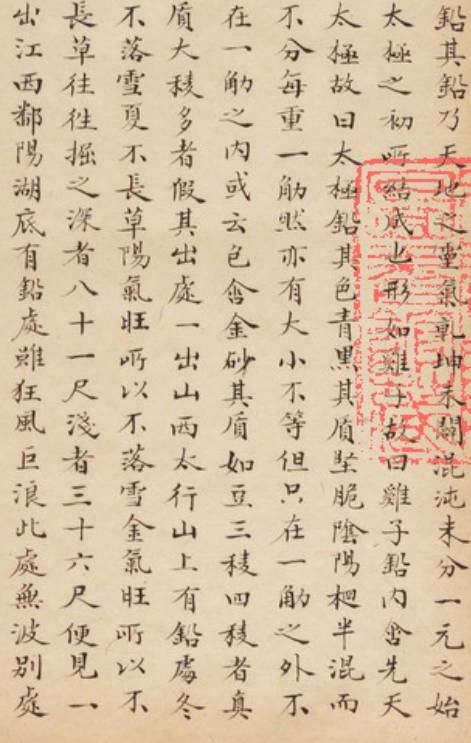 鉛其鉛乃天地之靈氣乾坤未闢混沌未分一元之始
太極之初所結成也形如雞子故曰雞子鉛內含先天
太極故曰太極鉛其色青黑其質堅脆陰陽相半混而
不分每重一觔然亦有大小不等但只在一觔之外不
在一觔之內或云色含金砂其質如豆三稜四稜者真
質大稜多者假其出處一出山西太行山上有鉛處冬
不落雪夏不長草陽氣旺所以不落雪金氣旺所以不
長草往往掘之深者八十一尺淺者三十六尺便見一
出江西鄱陽湖底有鉛處雖狂風巨浪此處無波別處